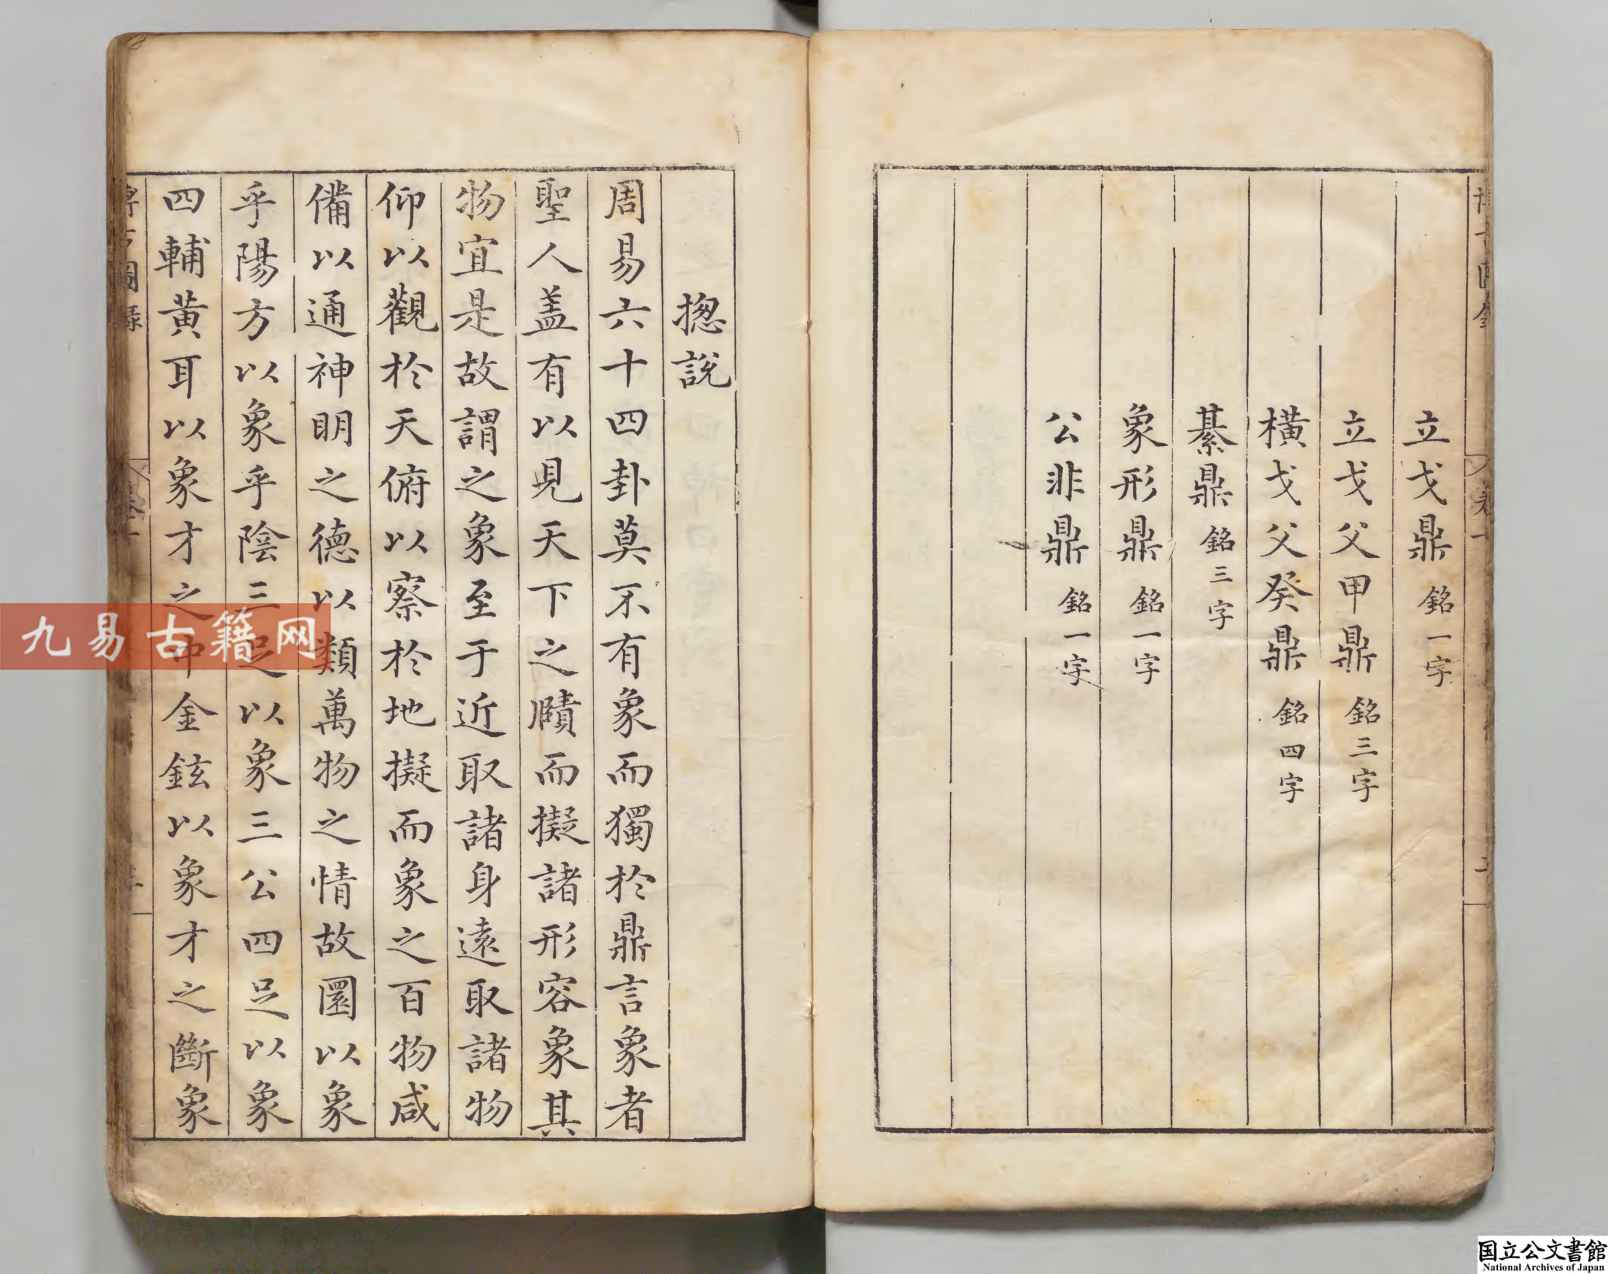 立戈鼎銘一字
立戈父甲鼎銘三字
橫戈父癸鼎銘四字
綦鼎銘三字
象形鼎銘一字
公非鼎銘一字
揔說
周易六十四卦莫不有象而獨於鼎言象者
聖人盖有以見天下之賾而擬諸形容象其
物宜是故謂之象至于近取諸身遠取諸物
仰以觀於天俯以察於地擬而象之百物咸
備以通神明之德以類萬物之情故圜以象
乎陽方以象乎陰三足以象三公四足以象
四輔黃耳以象才之中金鉉以象才之斷象
九易古籍网
国立公文書館
National Archives of Japan